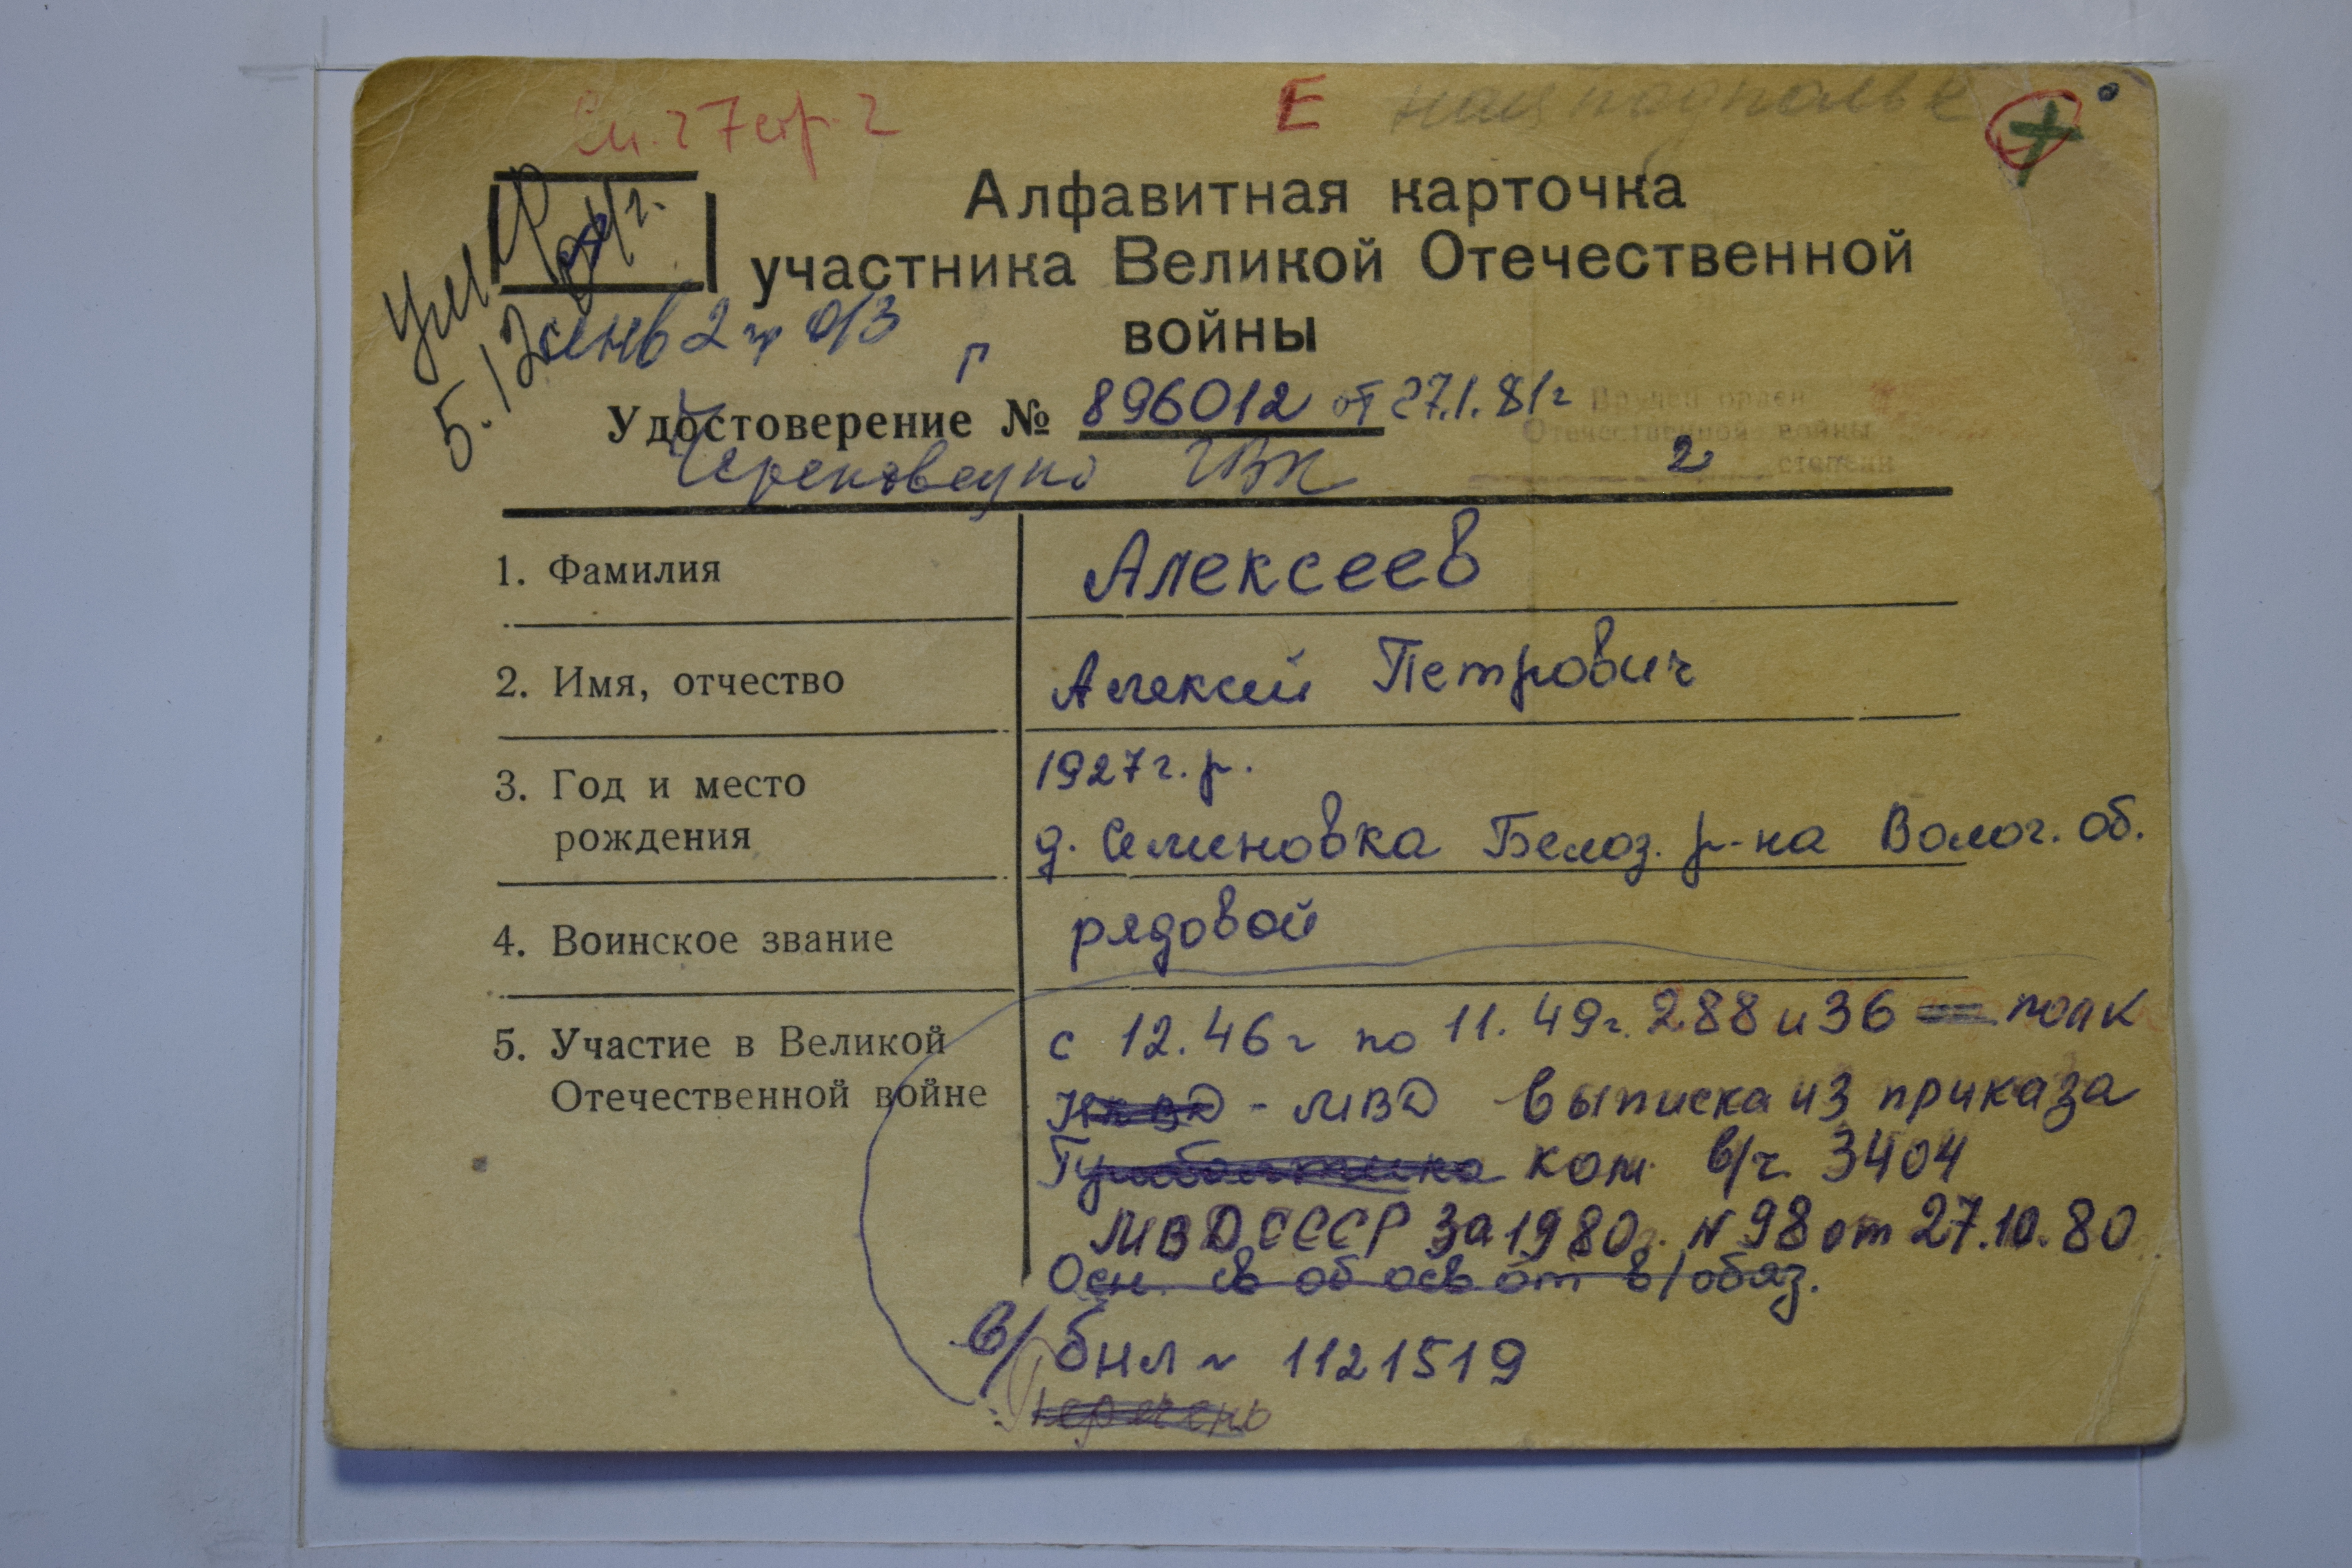 Е нац подполье
Алфавитная карточка
участника Великой Отечественной
войны
Умер
5.12
инв 2 гр о/з
Удостоверение № 896012 от 27.1.81г
Вручен орден
Отечественной войны
2 степени
Череповецко ГВК
1. Фамилия
Алексеев
2. Имя, отчество
Алексей Петрович
3. Год и место
рождения
1927 г. р.
д. Семеновка Белоз. р-на Волог. об.
4. Воинское звание
рядовой
5. Участие в Великой
Отечественной войне
с 12.46 г по 11.49г. 288 и 36 полк
НКВД - МВД выписка из приказа
ком. в/ч. 3404
МВД СССР за 1980г. N 98 от 27.10.80
Осн. св об осв от в/обяз.
в/бил N 1121519